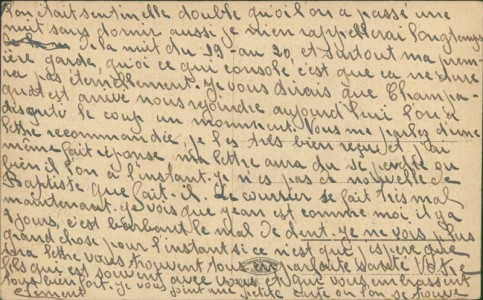 l'on était sentinelle double quoi l'on a passé une
nuit sans dormir aussi je m'en rappellerai longtemps
de la nuit du 19 au 20, et surtout ma prem-
ière garde, quoi ce qui console c'est que ca ne dure
ra pas éternellement. Je vous dirais que Champa-
est arrivé nous rejoindre aujourd'hui l'on a
discuté le coup un moment. Vous me parlez d'une
lettre recommandée, je l'ai très bien reçue et j'ai
même fait réponse ma lettre aura du se perdre ou
bien il l'on a l'instant. Je n'ai pas de nouvelle de
Baptiste que fait-il. Le courrier se fait très mal
maintenant. Je vois que Jean est comme moi il y a
jours, c'est barbant le mal de dent. Je ne vois plus
grand chose pour l'instant si ce n'est que j'espère que
ma lettre vous trouvent tous en parfaite santé Votre
fils qui est souvent avec vous et qui vous embrassent
tous bien fort. Je vous joint une petite carte que l'on a trouvé
Clément